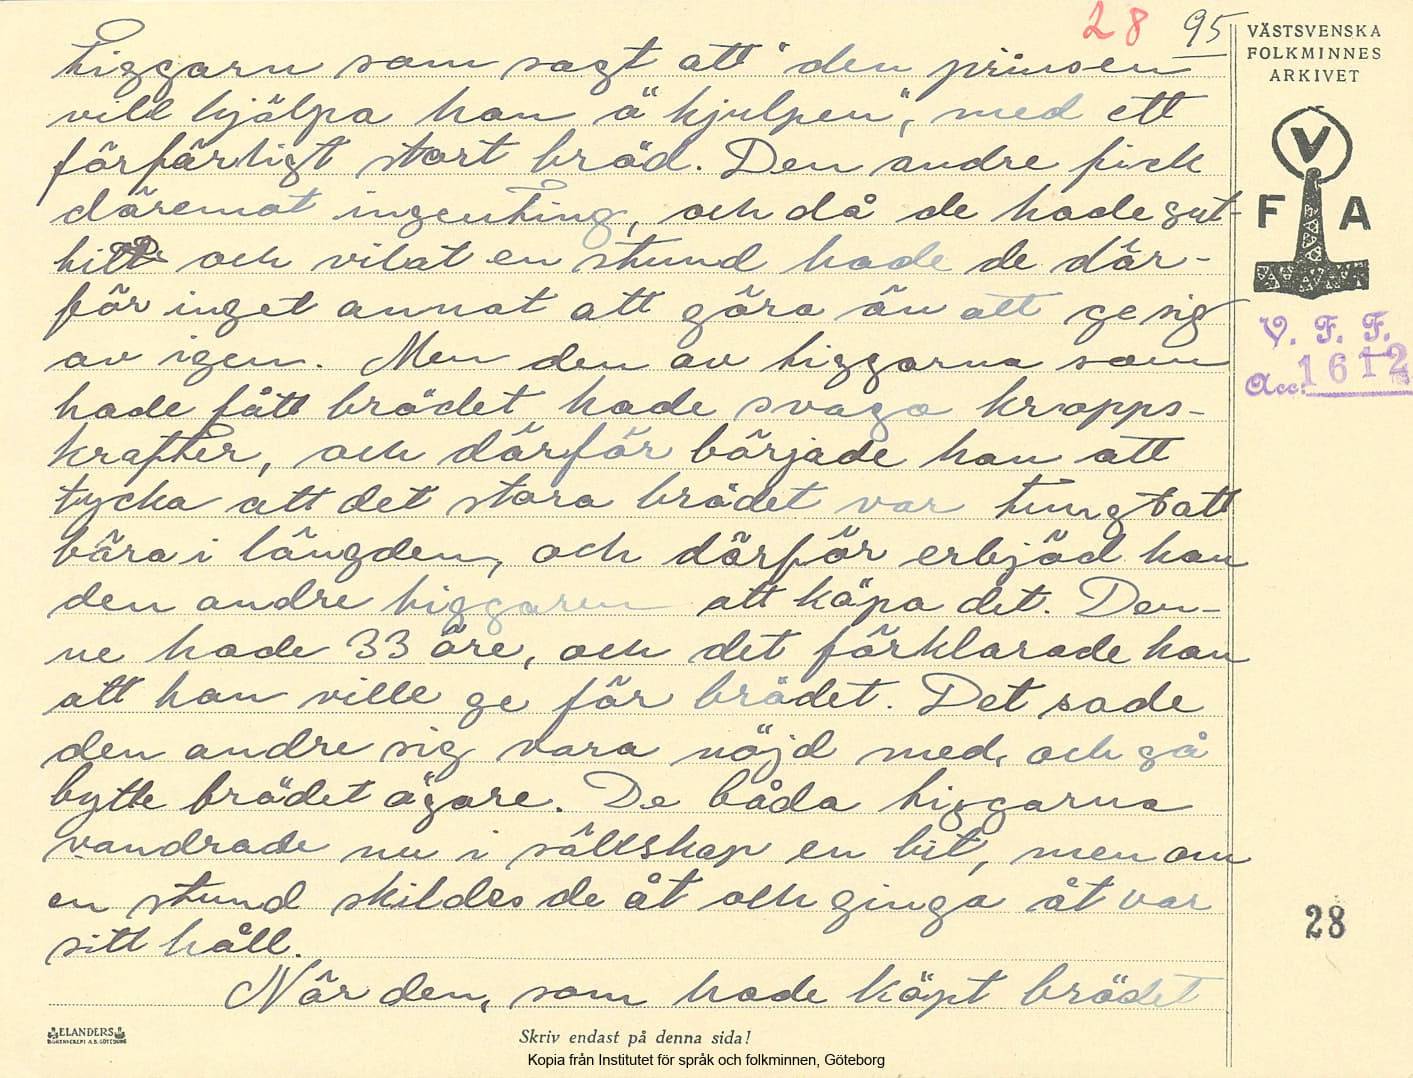 28 95
VÄSTSVENSKA
FOLKMINNES
ARKIVET
V
F A
V. F. F.
Acc. 1612
tiggarn som sagt att "den prinsen
vill hjälpa han ä hjulpen", med ett
förfärligt stort bröd. Den andre fick
däremot ingenting, och då de hade sut-
tit och vilat en stund hade de där-
för inget annat att göra än att ge sig
av igen. Men den av tiggarna som
hade fått brödet hade svaga kropps-
krafter, och därför började han att
tycka att det stora brödet var tungt att
bära i längden, och därför erbjöd han
den andre tiggaren att köpa det. Den-
ne hade 33 öre, och det förklarade han
att han ville ge för brödet. Det sade
den andre sig vara nöjd med, och så
bytte brödet ägare. De båda tiggarna
vandrade nu i sällskap en bit, men om
en stund skildes de åt och ginga åt var
sitt håll.
När den, som hade köpt brödet
28
ELANDERS
BOKTRYCKERI A.B. GÖTEBORG
Skriv endast på denna sida!
Kopia från Institutet för språk och folkminnen, Göteborg